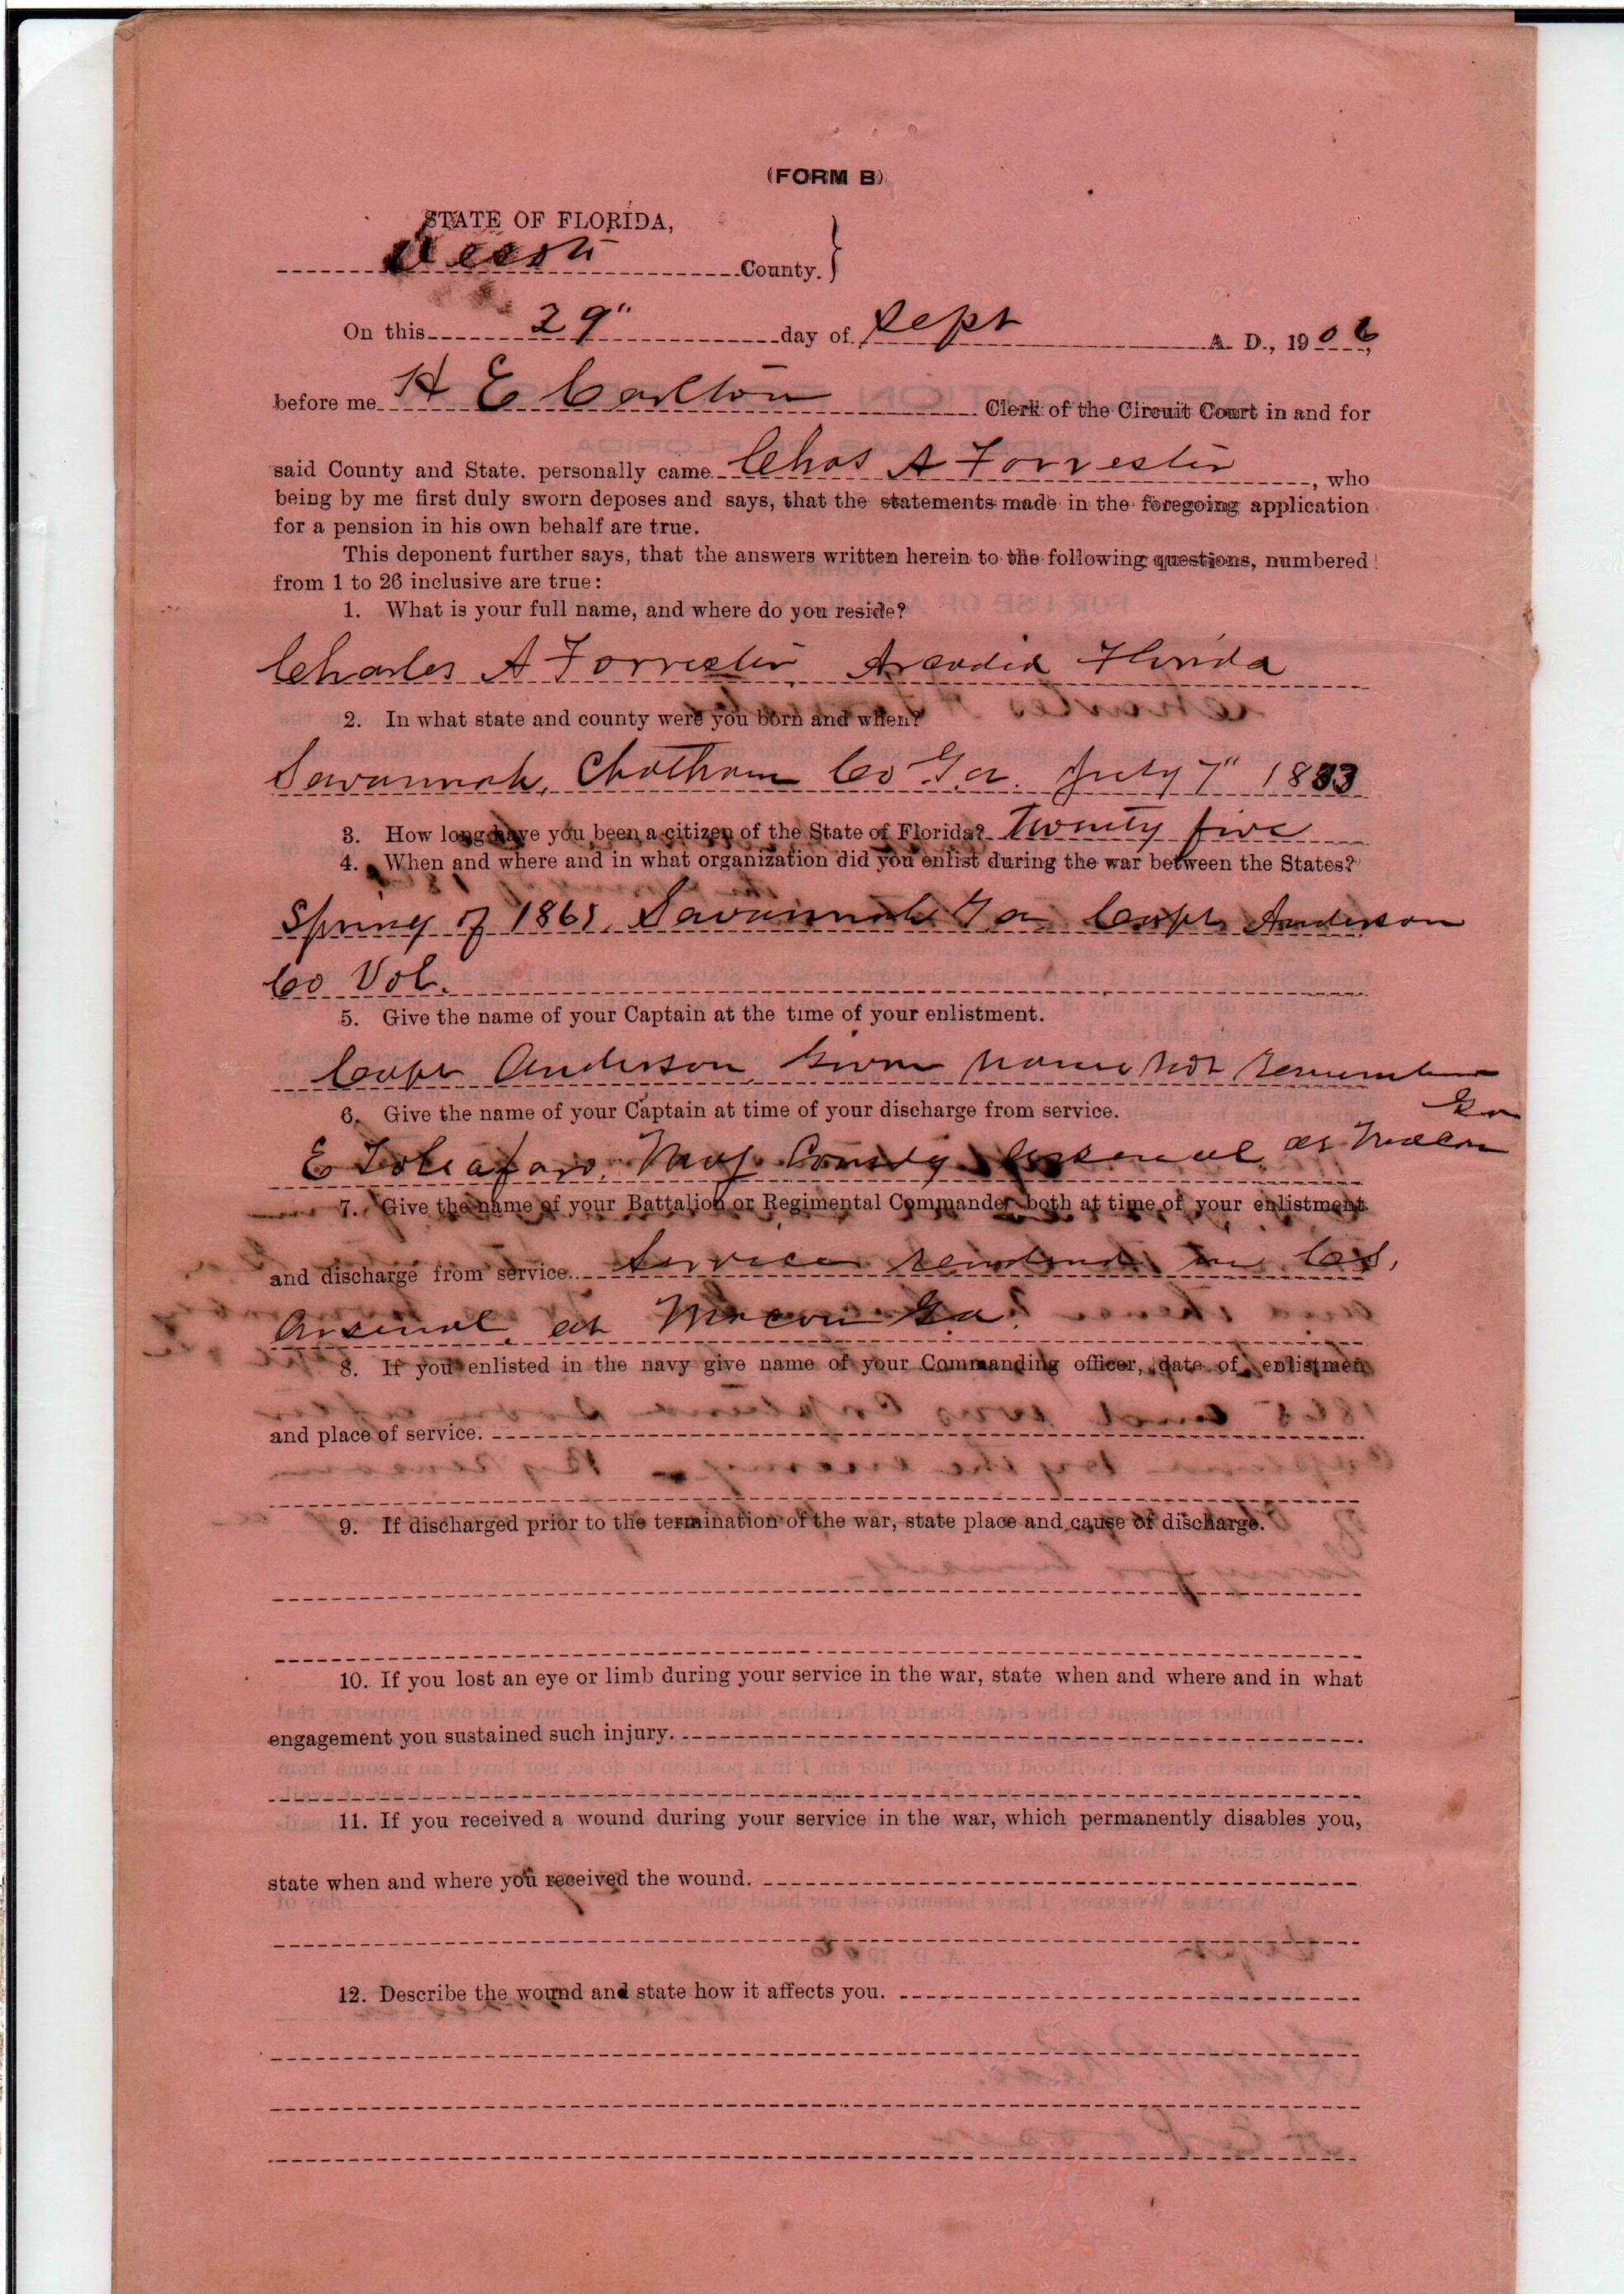 (FORM B)
STATE OF FLORIDA,
Desoto County.
On this 29" day of Sept A. D., 1906,
before me H E Carlton Clerk of the Circuit Court in and for
said County and State. personally came Chas A Forrester, who
being by me first duly sworn deposes and says, that the statements made in the foregoing application
for a pension in his own behalf are true.
This deponent further says, that the answers written herein to the following questions, numbered
from 1 to 26 inclusive are true:
1. What is your full name, and where do you reside?
Charles A Forrester, Arcadia Florida
2. In what state and county were you born and when?
Savannah, Chatham Co Ga. July 7" 1833
3. How long have you been a citizen of the State of Florida? Twenty five
4. When and where and in what organization did you enlist during the war between the States?
Spring of 1861, Savannah Ga Capt Anderson
Co Vol.
5. Give the name of your Captain at the time of your enlistment.
Capt Anderson, given name not remember
6. Give the name of your Captain at time of your discharge from service.
E Toliafaro, Maj Comdg Arsenal, at Macon
Ga
7. Give the name of your Battalion or Regimental Commander both at time of your enlistment
and discharge from service. Service rendered in C.S.
Arsenal, at Macon Ga.
8. If you enlisted in the navy give name of your Commanding officer, date of enlistmen
and place of service.
9. If discharged prior to the termination of the war, state place and cause of discharge.
10. If you lost an eye or limb during your service in the war, state when and where and in what
engagement you sustained such injury.
11. If you received a wound during your service in the war, which permanently disables you,
state when and where you received the wound.
12. Describe the wound and state how it affects you.